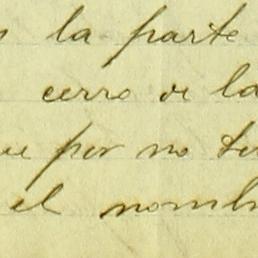 la parte
cerro de la
por no
el nomb